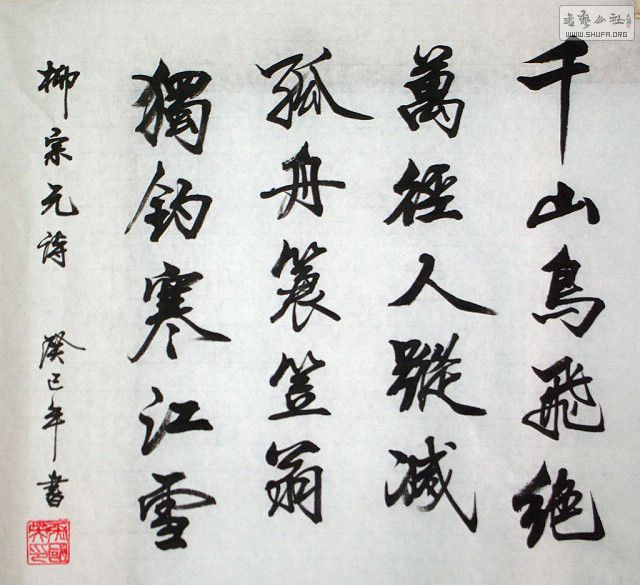 千山鳥飛絶
萬徑人蹤滅
孤舟簑笠翁
獨釣寒江雪
柳宗元詩 癸巳年書
書藝公社
WWW.SHUFA.ORG